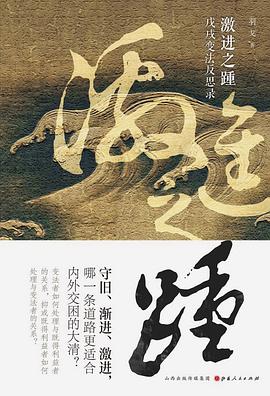 羽戈 著
激进之踵
戊戌变法反思录
激进之踵
守旧、渐进、激进，
哪一条道路更适合
内外交困的大清？
变法者如何处理与既得利益者
的关系，抑或既得利益者如何
处理与变法者的关系？
山西出版传媒集团 山西人民出版社